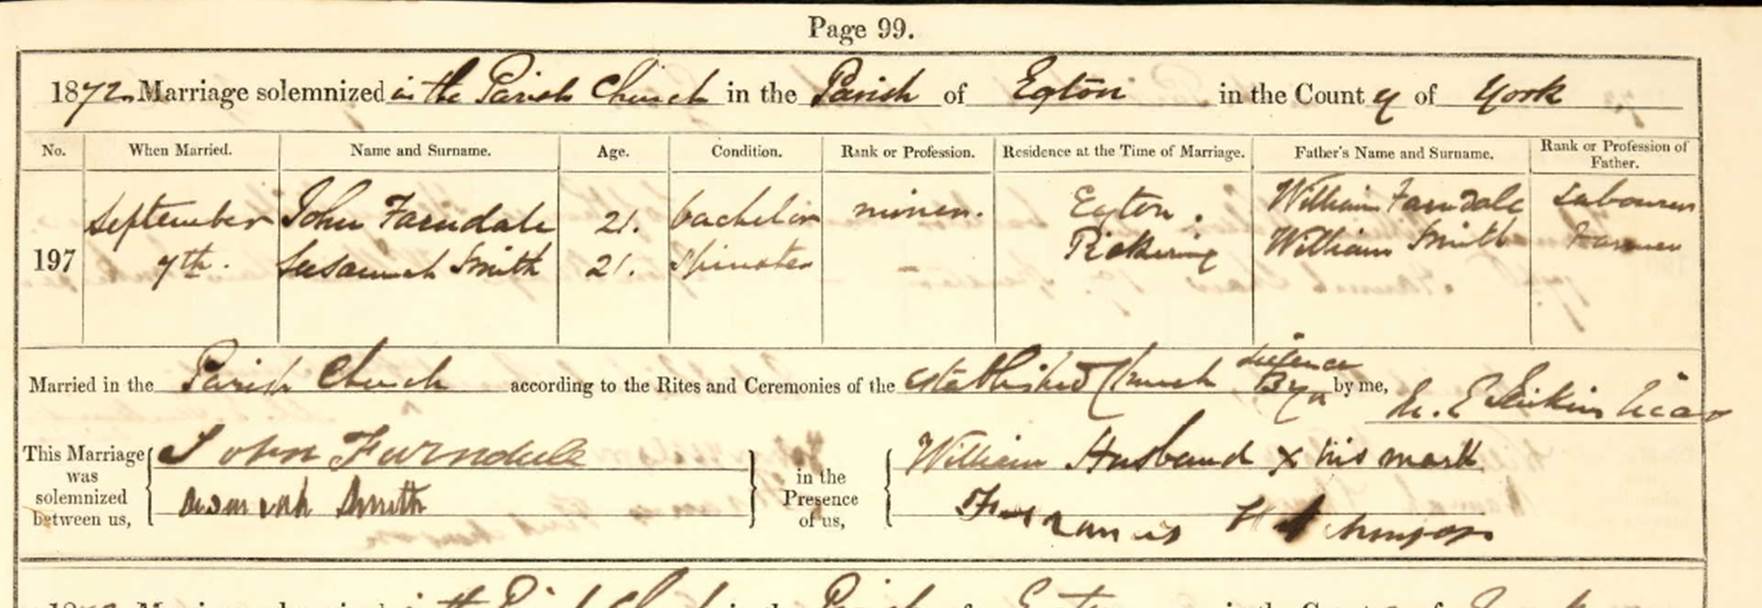 Page 99.
1872. Marriage solemnized in the Parish Church in the Parish of Egton in the County of York
No. When Married. Name and Surname. Age. Condition. Rank or Profession. Residence at the Time of Marriage. Father's Name and Surname. Rank or Profession of Father.
September John Farndale 21. bachelor miner. Egton. William Farndale Labourer
197 7th. Susannah Smith 21. Spinster — Pickering William Smith Farmer
Married in the Parish Church according to the Rites and Ceremonies of the Established Church By by me, Vicar
This Marriage was solemnized between us, John Farndale in the Presence of us, William Husband x his mark
Smith Francis